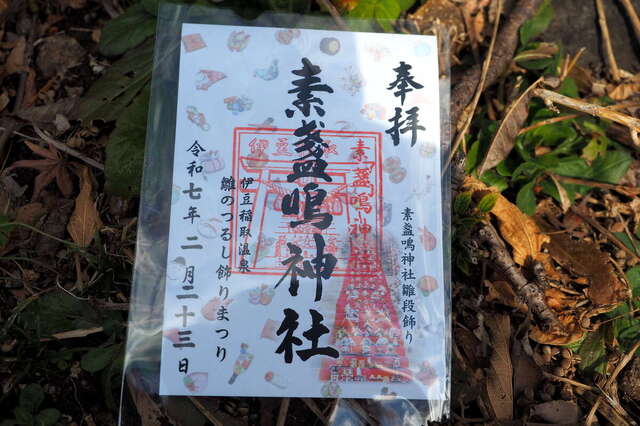 奉拝
素盞鳴神社雛段飾り
素盞鳴神社
伊豆稲取温泉
雛のつるし飾りまつり
令和七年二月二十三日
素盞鳴神社
伊豆稲取